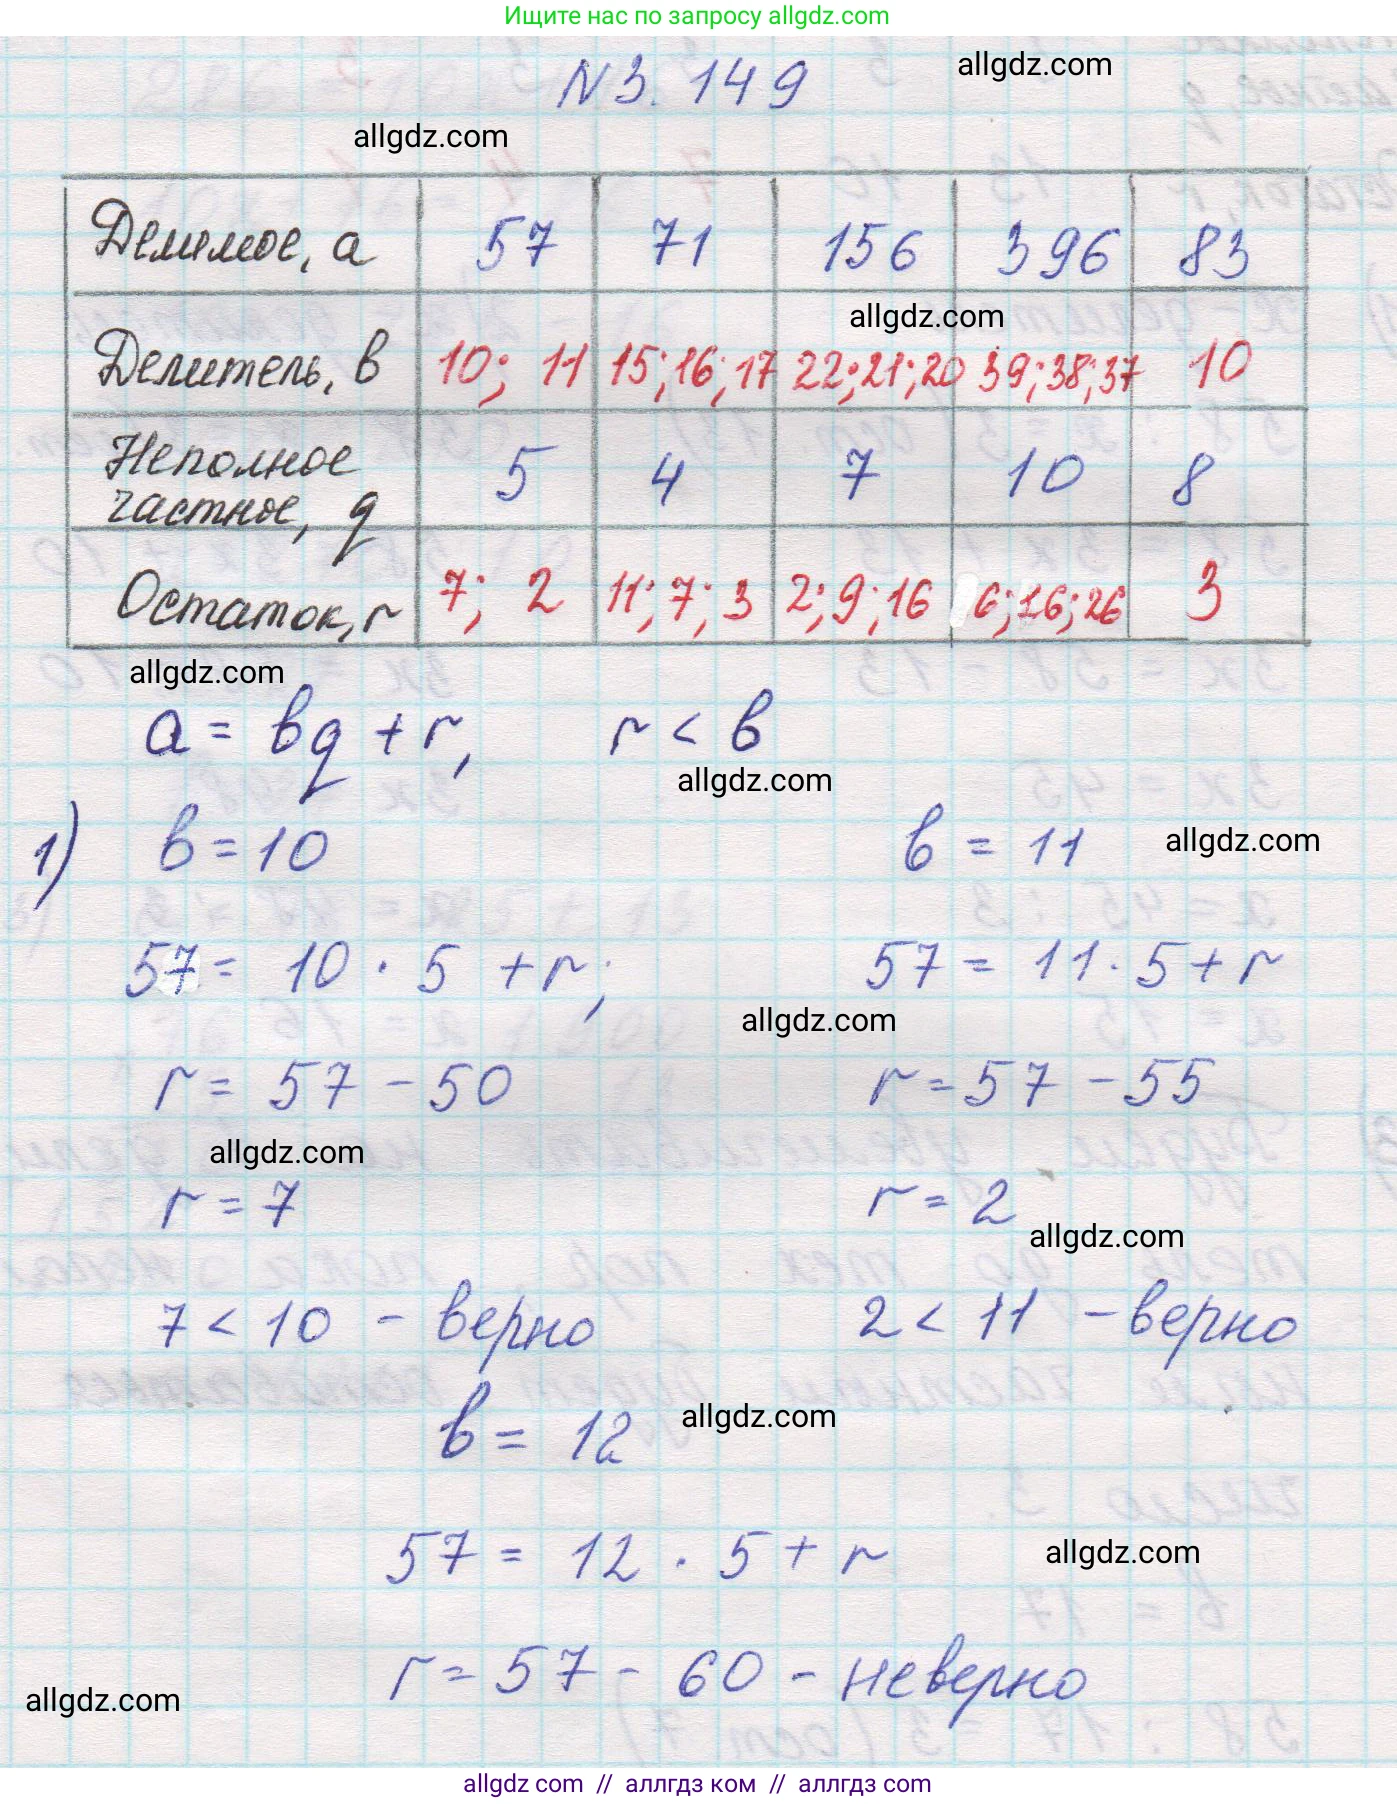 Ищите нас по запросу allgdz.com
N 3. 149
allgdz.com
allgdz.com
Делимое, а 57 71 156 396 83
allgdz.com
Делитель, в 10; 11 15;16;17 22;21;20 39;38;37 10
Неполное частное, q 5 4 7 10 8
Остаток, r 7; 2 11; 7; 3 2;9;16 6;16;26 3
allgdz.com
a = вq + r, r < в
allgdz.com
1) в = 10 в = 11
allgdz.com
57 = 10 · 5 + r; 57 = 11 · 5 + r
allgdz.com
r = 57 - 50 r = 57 - 55
allgdz.com
r = 7 r = 2
allgdz.com
7 < 10 - верно 2 < 11 - верно
в = 12
allgdz.com
57 = 12 · 5 + r
allgdz.com
r = 57 - 60 - неверно
allgdz.com
allgdz com // аллгдз ком // аллгдз com